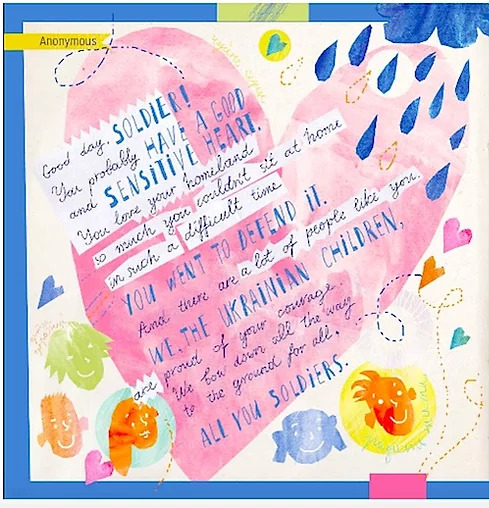 Anonymous
Good day, SOLDIER!
You probably HAVE A GOOD
and SENSITIVE HEART.
You love your homeland
so much you couldn't sit at home
in such a difficult time
YOU WENT TO DEFEND IT.
And there are a lot of people like you.
WE, THE UKRAINIAN CHILDREN,
are proud of your courage.
We bow down all the way
to the ground for all,
ALL YOU SOLDIERS.